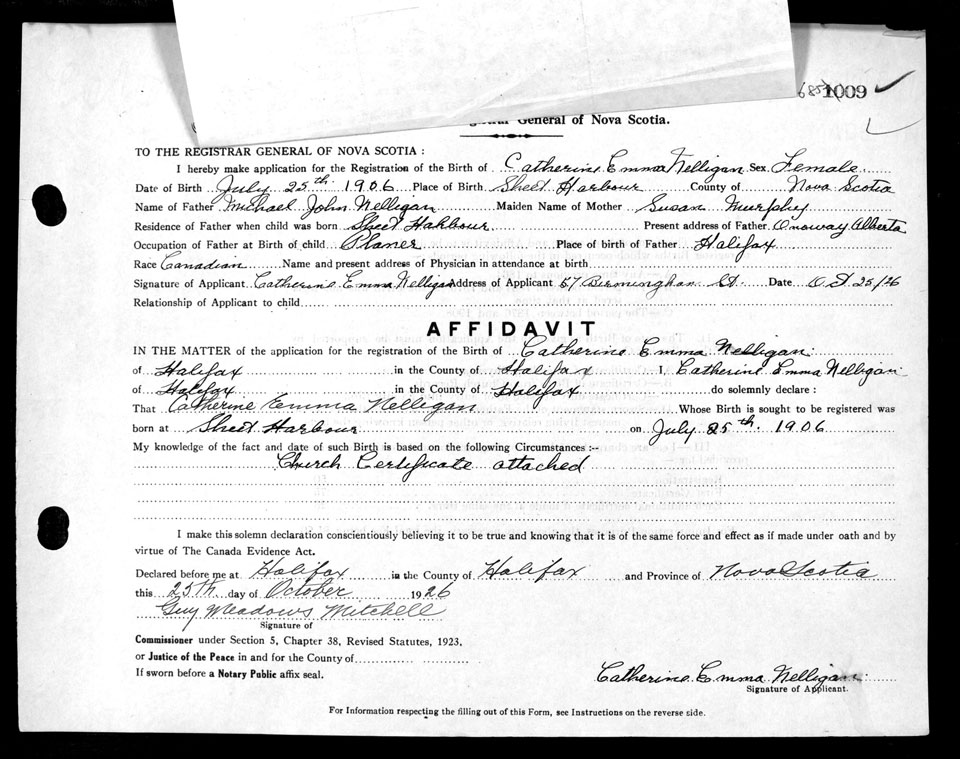 1009
General of Nova Scotia.
TO THE REGISTRAR GENERAL OF NOVA SCOTIA :
I hereby make application for the Registration of the Birth of Catherine Emma Nelligan Sex Female
Date of Birth July 25th 1906 Place of Birth Sheet Harbour County of Nova Scotia
Name of Father Michael John Nelligan Maiden Name of Mother Susan Murphy
Residence of Father when child was born Sheet Harbour Present address of Father Onoway Alberta
Occupation of Father at Birth of child Planer Place of birth of Father Halifax
Race Canadian Name and present address of Physician in attendance at birth
Signature of Applicant Catherine Emma Nelligan Address of Applicant 57 Birmingham St. Date Oct 25/26
Relationship of Applicant to child
AFFIDAVIT
IN THE MATTER of the application for the registration of the Birth of Catherine Emma Nelligan
of Halifax in the County of Halifax I, Catherine Emma Nelligan
of Halifax in the County of Halifax do solemnly declare :
That Catherine Emma Nelligan Whose Birth is sought to be registered was
born at Sheet Harbour on July 25th. 1906
My knowledge of the fact and date of such Birth is based on the following Circumstances :--
Church Certificate attached
I make this solemn declaration conscientiously believing it to be true and knowing that it is of the same force and effect as if made under oath and by
virtue of The Canada Evidence Act.
Declared before me at Halifax in the County of Halifax and Province of Nova Scotia
this 25th day of October 1926
Guy Meadows Mitchell
Signature of
Commissioner under Section 5, Chapter 38, Revised Statutes, 1923.
or Justice of the Peace in and for the County of
If sworn before a Notary Public affix seal.
Catherine Emma Nelligan
Signature of Applicant.
For Information respecting the filling out of this Form, see Instructions on the reverse side.